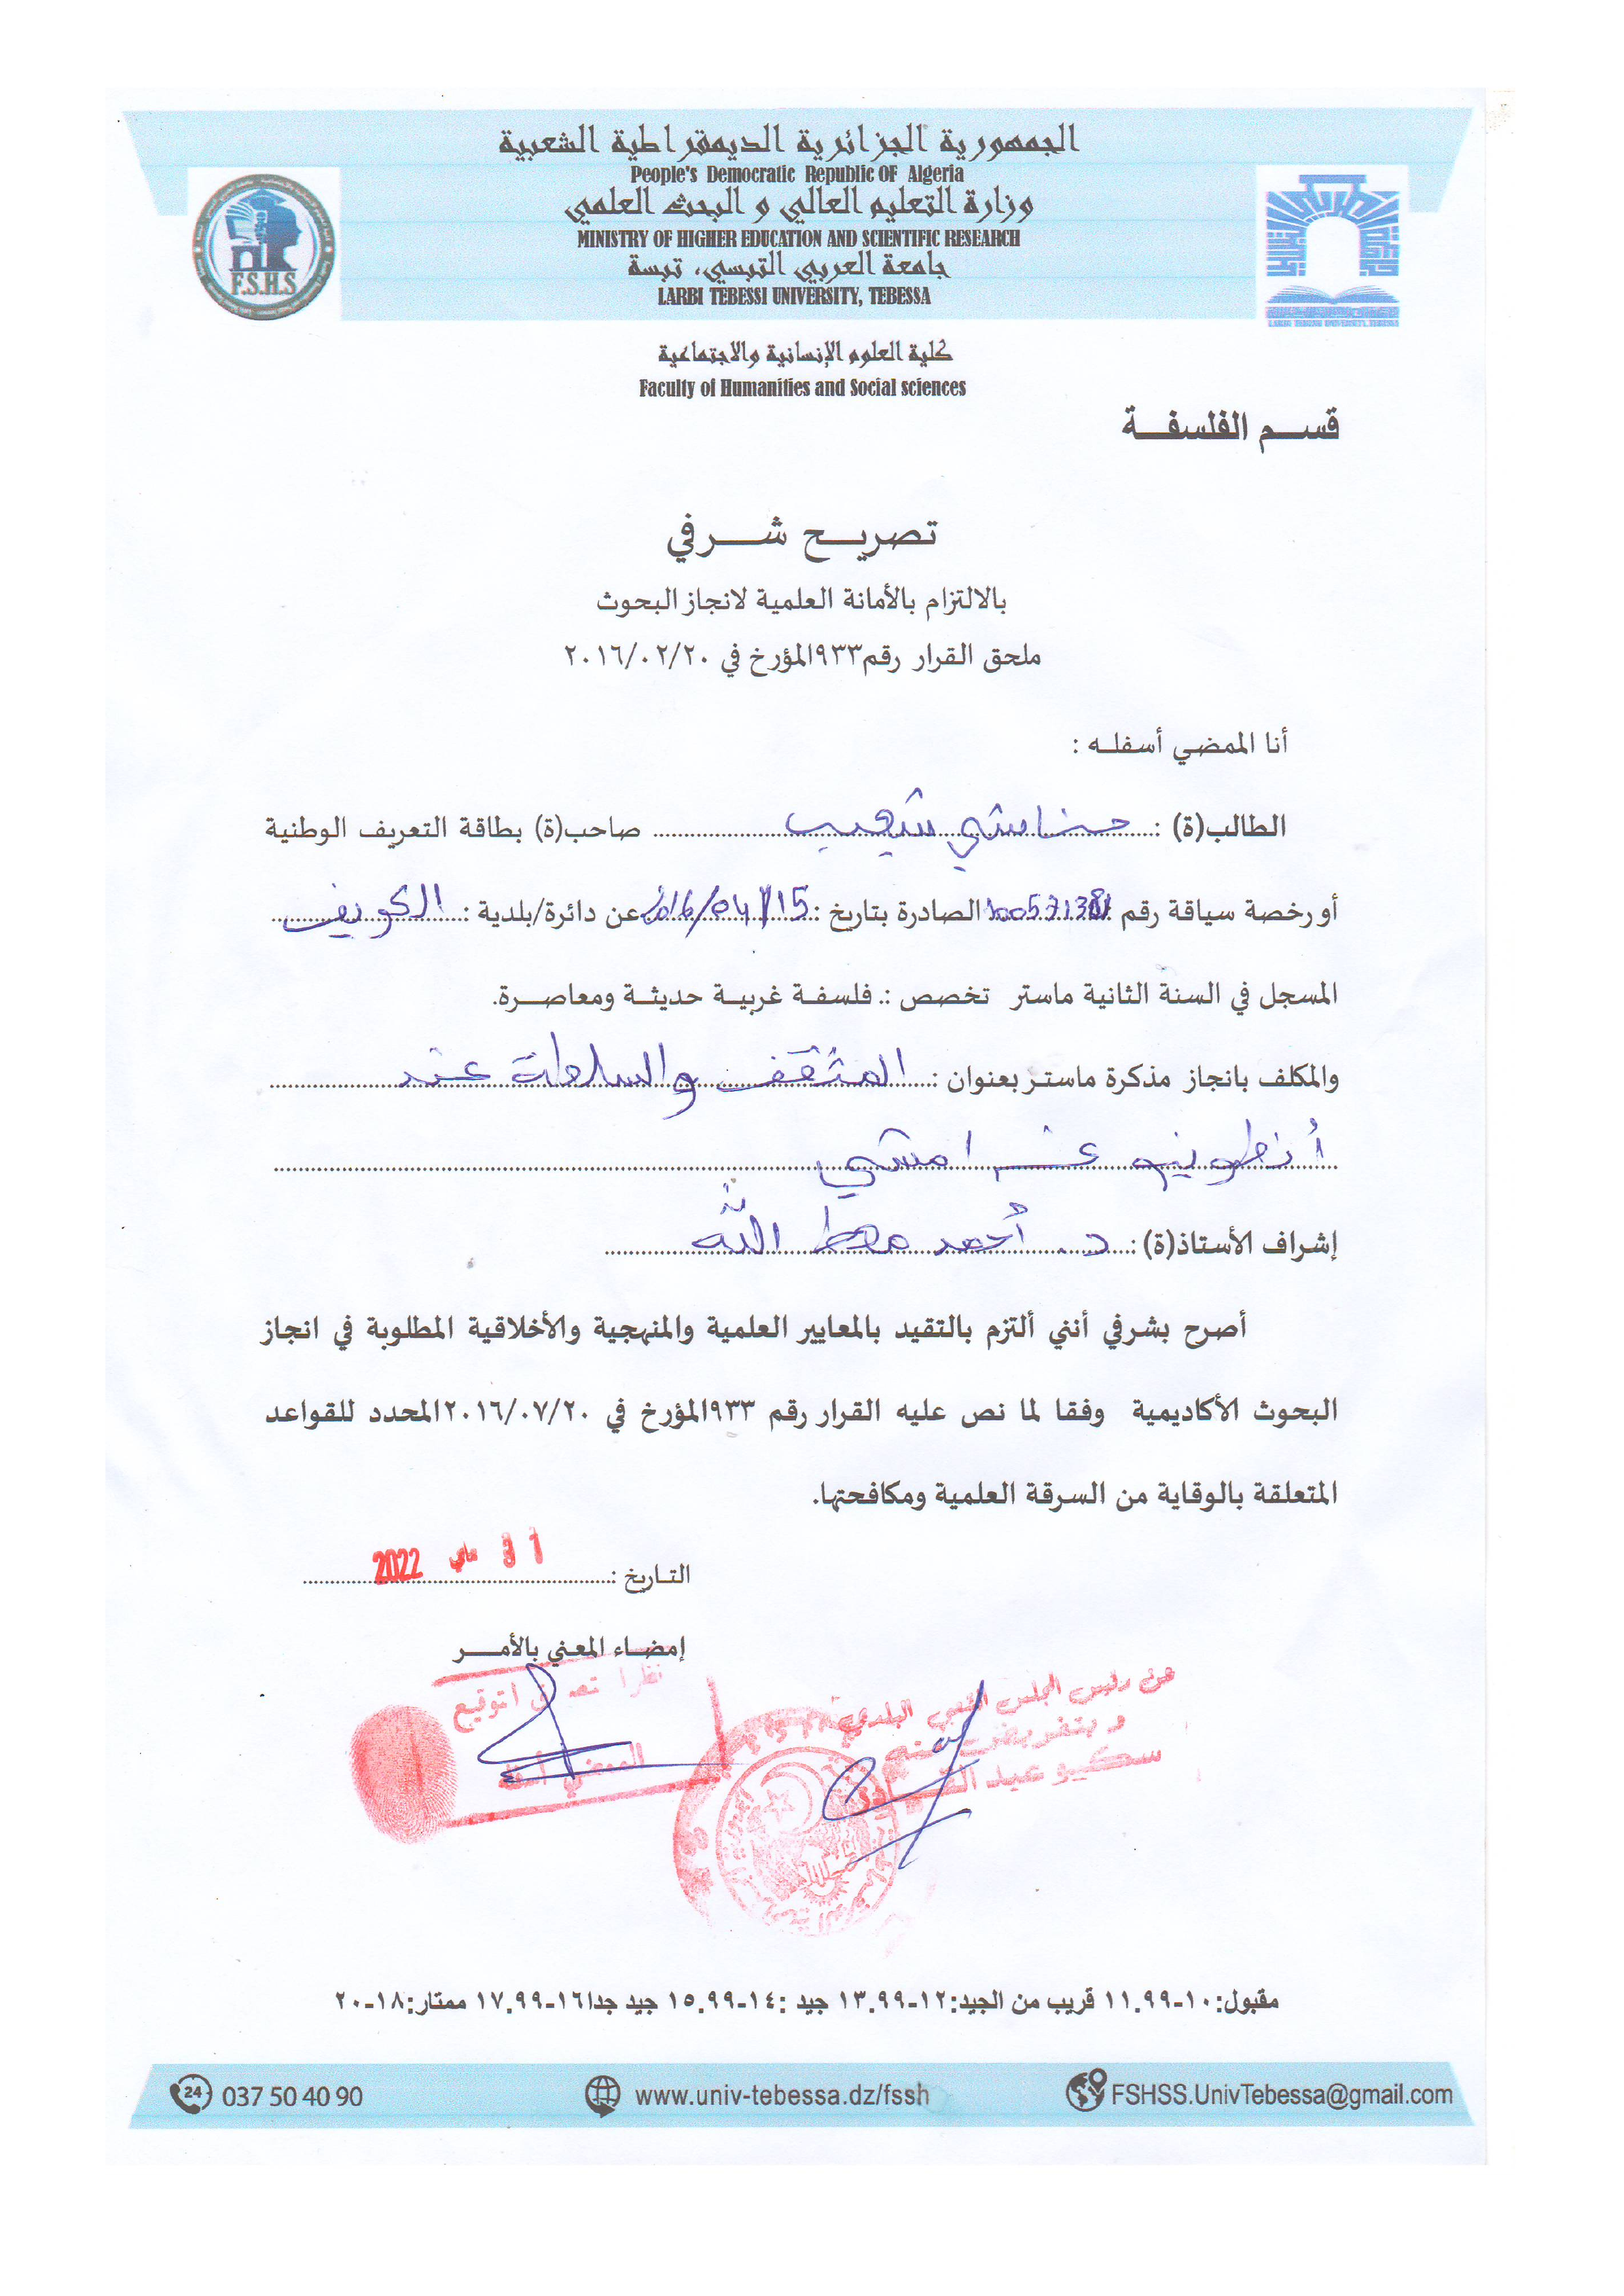 الجمهورية الجزائرية الديمقراطية الشعبية
People's Democratic Republic OF Algeria
وزارة التعليم العالي و البحث العلمي
MINISTRY OF HIGHER EDUCATION AND SCIENTIFIC RESEARCH
جامعة العربي التبسي، تبسة
LARBI TEBESSI UNIVERSITY, TEBESSA
F.S.H.S
كلية العلوم الإنسانية والاجتماعية
Faculty of Humanities and Social sciences
قسم الفلسفة
تصريح شرفي
بالالتزام بالأمانة العلمية لانجاز البحوث
ملحق القرار رقم ٩٣٣المؤرخ في ٢٠١٦/٠٢/٢٠
أنا الممضي أسفله :
الطالب(ة) : حناشي شعيب صاحب(ة) بطاقة التعريف الوطنية
أو رخصة سياقة رقم الصادرة بتاريخ : 2016/04/15 عن دائرة/بلدية : الكويف
المسجل في السنة الثانية ماستر تخصص :. فلسفة غربية حديثة ومعاصرة.
والمكلف بانجاز مذكرة ماستر بعنوان : المثقف والسلطة عند
أنطونيو غرامشي
إشراف الأستاذ(ة) : د. أحمد معط الله
أصرح بشرفي أنني ألتزم بالتقيد بالمعايير العلمية والمنهجية والأخلاقية المطلوبة في انجاز
البحوث الأكاديمية وفقا لما نص عليه القرار رقم ٩٣٣المؤرخ في ٢٠١٦/٠٧/٢٠المحدد للقواعد
المتعلقة بالوقاية من السرقة العلمية ومكافحتها.
التاريخ : 31 ماي 2022
إمضاء المعني بالأمر
نظرا
الممضي أسفله
عن رئيس المجلس الشعبي البلدي
و بتفويض منه
مقبول:١٠-١١.٩٩ قريب من الجيد:١٢-١٣.٩٩ جيد :١٤-١٥.٩٩ جيد جدا١٦-١٧.٩٩ ممتاز:١٨-٢٠
24 037 50 40 90 www.univ-tebessa.dz/fssh FSHSS.UnivTebessa@gmail.com